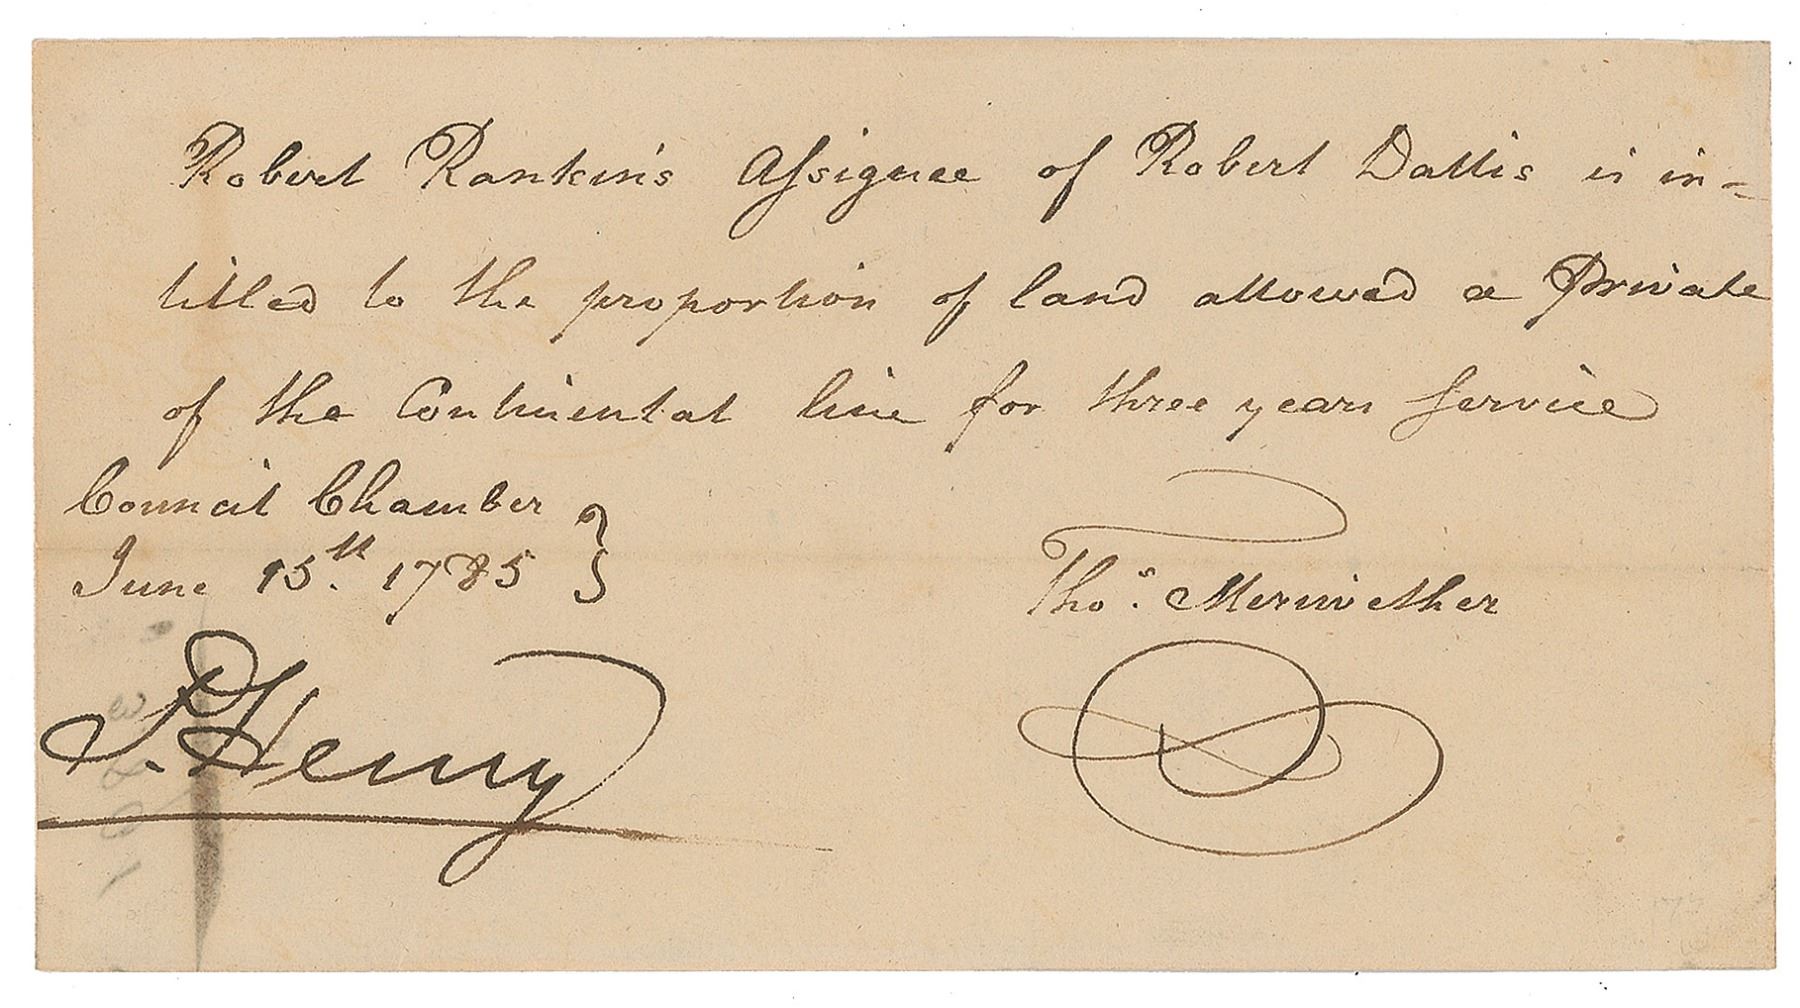 Robert Rankin's Assignee of Robert Dallis is in=
titled to the proportion of land allowed a Private
of the Continental line for three years Service
Council Chamber
June 15th. 1785 }
Thos. Meriwether
P. Henry